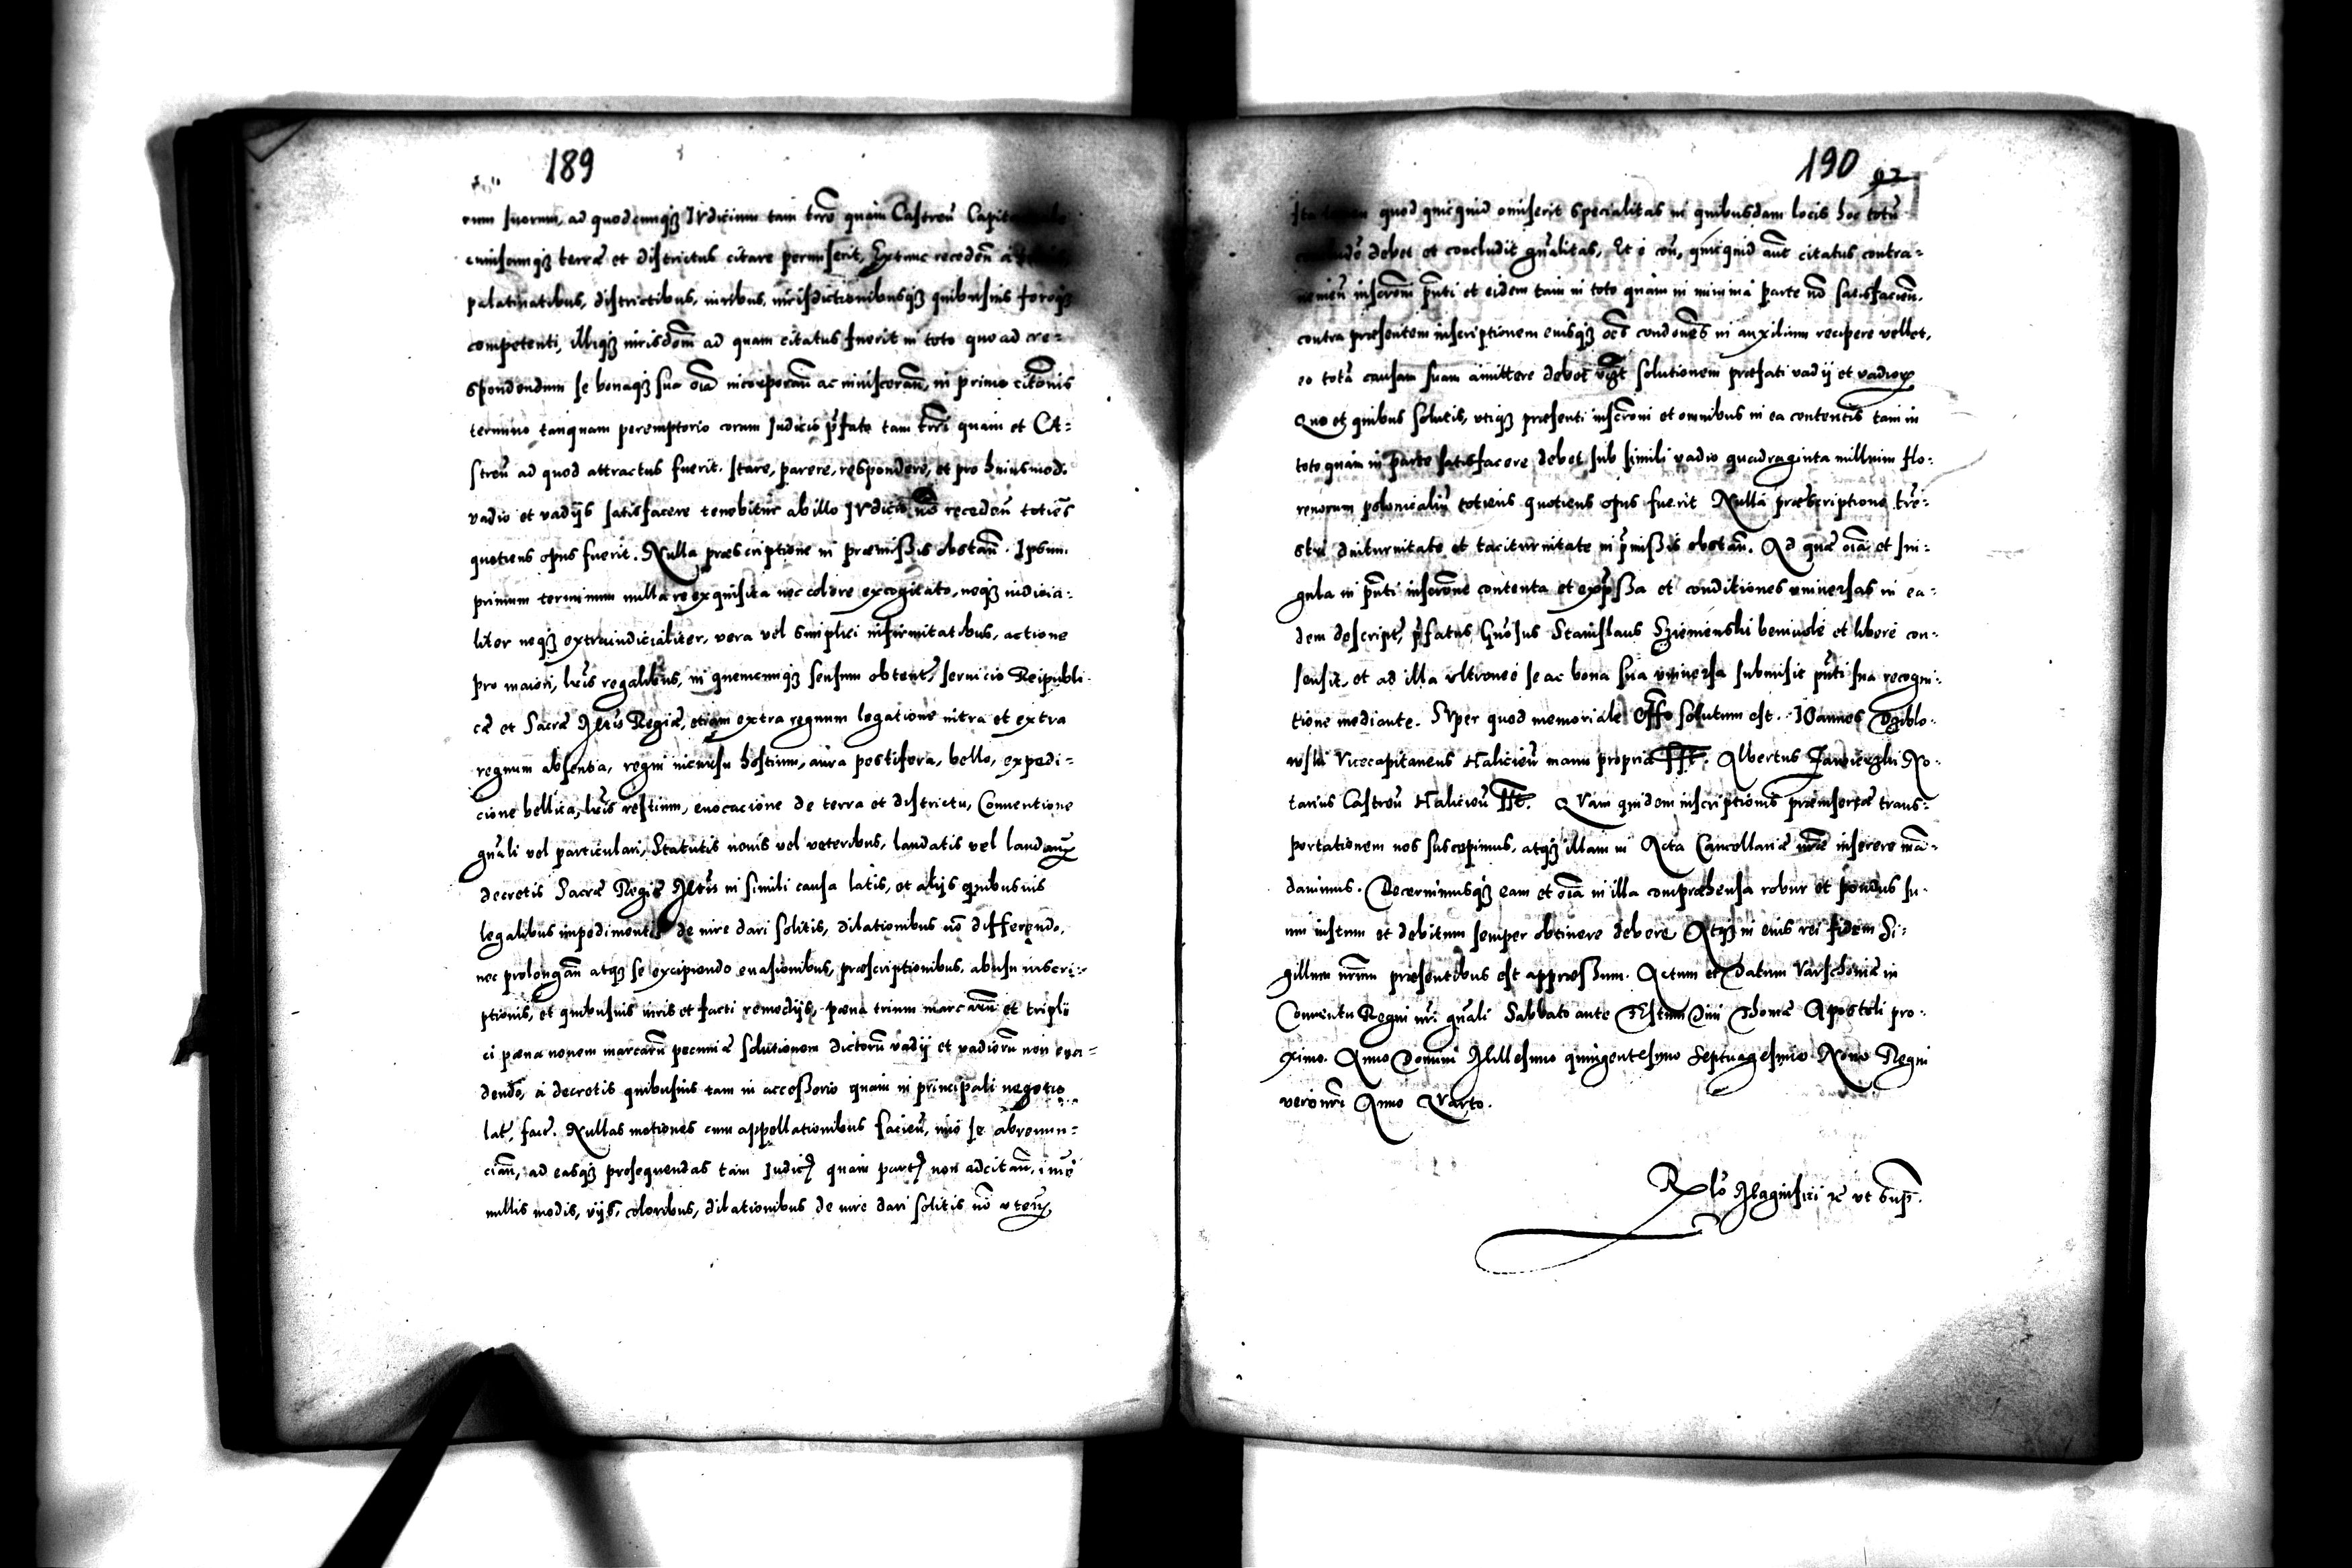 189
eum suorum, ad quodcunqꝫ IVdicium tam trre quam Castreñ
cuiuscunqꝫ terræ et districtus citare permiserit, Extunc recedeñ a
palatinatibus, districtibus, iuribus, iurisdictionibusqꝫ quibusuis foroqꝫ
competenti, illiqꝫ iurisdom̃ ad quam citatus fuerit in toto quo ad re-
spondendum se bonaqꝫ sua oĩa incorporañ ac inuisceran̄, in primo citõnis
termino tanquam peremptorio coram Iudicio p̃fato tam trri quam et CA-
streñ ad quod attractus fuerit. stare, parere, respondere, et pro huiusmodi
vadio et vadijs satisfacere tenebitur ab illo IVdicio nõ recedeñ toties
quotiens opus fuerit. Nulla præscriptione in præmissis obstañ. Ipsum
primum terminum nulla re exquisita nec colore excogitato, neqꝫ iudicia-
liter neqꝫ extraiudicialiter, vera vel simplici infirmitatibus, actione
pro maiori, lr̃is regalibus, in quemcunqꝫ sensum obtent, seruicio Reipubli-
cæ et Sacræ Mtis Regiæ, etiam extra regnum legatione intra et extra
regnum absentia, regni incursu hostium, aura pestifera, bello, expedi-
cione bellica, lr̃is restium, euocacione de terra et districtu, Conuentione
gnãli vel particulari, Statutis nouis vel veteribus, laudatis vel laudanꝝ
decretis Sacræ Regiæ Mtis in simili causa latis, et alijs quibusuis
legalibus impedimentis de iure dari solitis, dilationibus nõ differendo,
nec prolongañ atqꝫ se excipiendo euasionibus, præscriptionibus, abusu inscri-
ptionis, et quibusuis iuris et facti remedijs, pœna trium marcarũ et tripli
ci pœna nonem marcarũ pecuniæ solutionem dictorũ vadij et vadiorũ non eua-
dendo, a decretis quibusuis tam in accessorio quam in principali negotio
lat, faĉ. Nullas motiones cum appellationibus facieñ, imo se abrenun-
ciañ, ad easqꝫ prosequendas tam Iudicꝫ quam partꝫ non adcitañ, imo
nullis modis, vijs, coloribus, dilationibus de iure dari solitis nõ vtenꝝ
190 92
quod quicquid omiserit specialitas in quibusdam locis hoc totũ
debet et concludit gñalitas, Et e cõ, quicquid aũt citatus contra-
insc̃rom p̃nti et eidem tam in toto quam in minima parte nõ satisfacieñ.
contra præsentem inscriptionem eiusqꝫ oẽs condones in auxilium recipere vellet,
eo totã causam suam amittere debet solutionem præfati vadij et vadioꝝ
Quo et quibus solutis, vtiqꝫ præsenti inscrõni et omnibus in ea contentis tam in
toto quam in parte satisfacere debet sub simili vadio quadraginta millium flo-
renorum polonicaliũ totiens quotiens opus fuerit Nulla præscriptione trẽ-
stri diuturnitate et taciturnitate in p̃missis obstañ. Ad quæ oĩa et sin-
gula in p̃nti inscrõne contenta et exp̃ssa et conditiones vniuersas in ea-
dem descript, p̃fatus Gnõsus Stanislaus beniuole et libere con-
sensit, et ad illa vltronee se ac bona sua vniuersa submisit p̃nti sua recogni-
tione mediante. SVper quod memoriale Offo solutum est. IOannes
wski Vicecapitaneus Halicieñ manu propria sst. Albertus No-
tarius Castreñ Halicieñ sst. QVam quidem inscriptionis præinsertæ trans-
portationem nos suscepimus, atqꝫ illam in Acta Cancellariæ nr̃æ inserere mã-
dauimus. Decernimusqꝫ eam et oĩa in illa compræhensa robur et pondus su-
um iustum et debitum semper obtinere debere Atqꝫ in eius rei fidem Si-
gillum nr̃um præsentibus est appressum. Actum et Datum Varschouiæ in
Conuentu Regni nr̃i gñali Sabbato ante Festum Diui Thomæ Apostoli pro-
ximo. Anno Domini Millesimo quingentesimo Septuagesimo Nono Regni
vero nr̃i Anno QVarto.
vt sup.